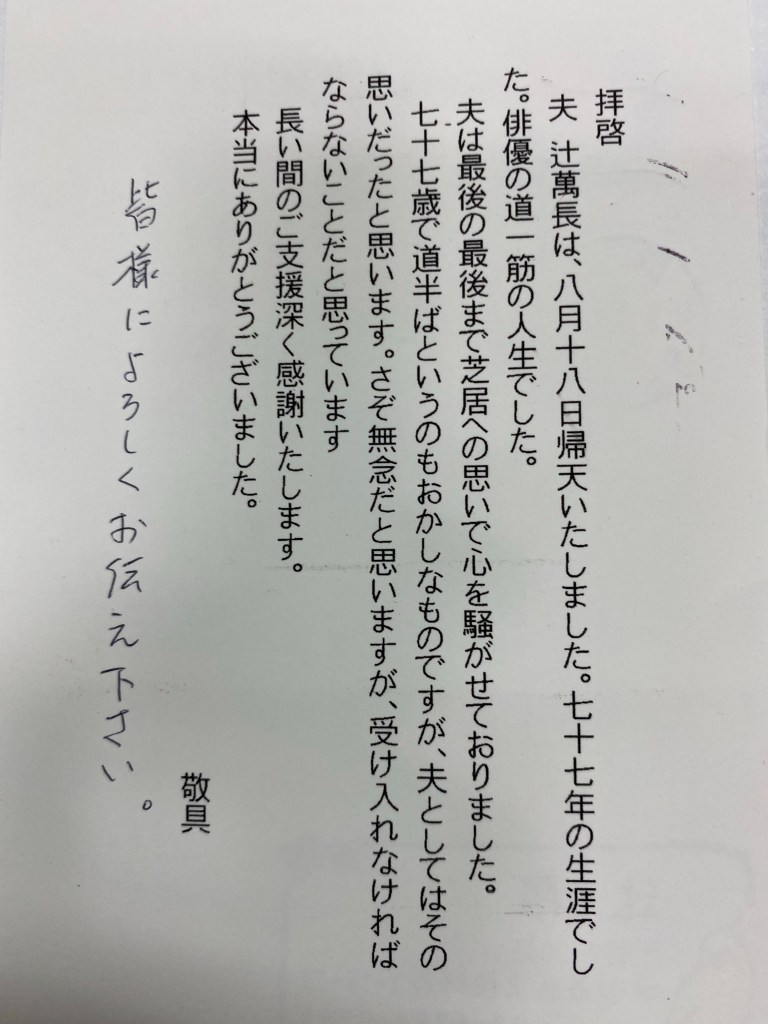 拝啓
夫　辻萬長は、八月十八日帰天いたしました。七十七年の生涯でし
た。俳優の道一筋の人生でした。
夫は最後の最後まで芝居への思いで心を騒がせておりました。
七十七歳で道半ばというのもおかしなものですが、夫としてはその
思いだったと思います。さぞ無念だと思いますが、受け入れなければ
ならないことだと思っています
長い間のご支援深く感謝いたします。
本当にありがとうございました。
敬具
皆様によろしくお伝え下さい。